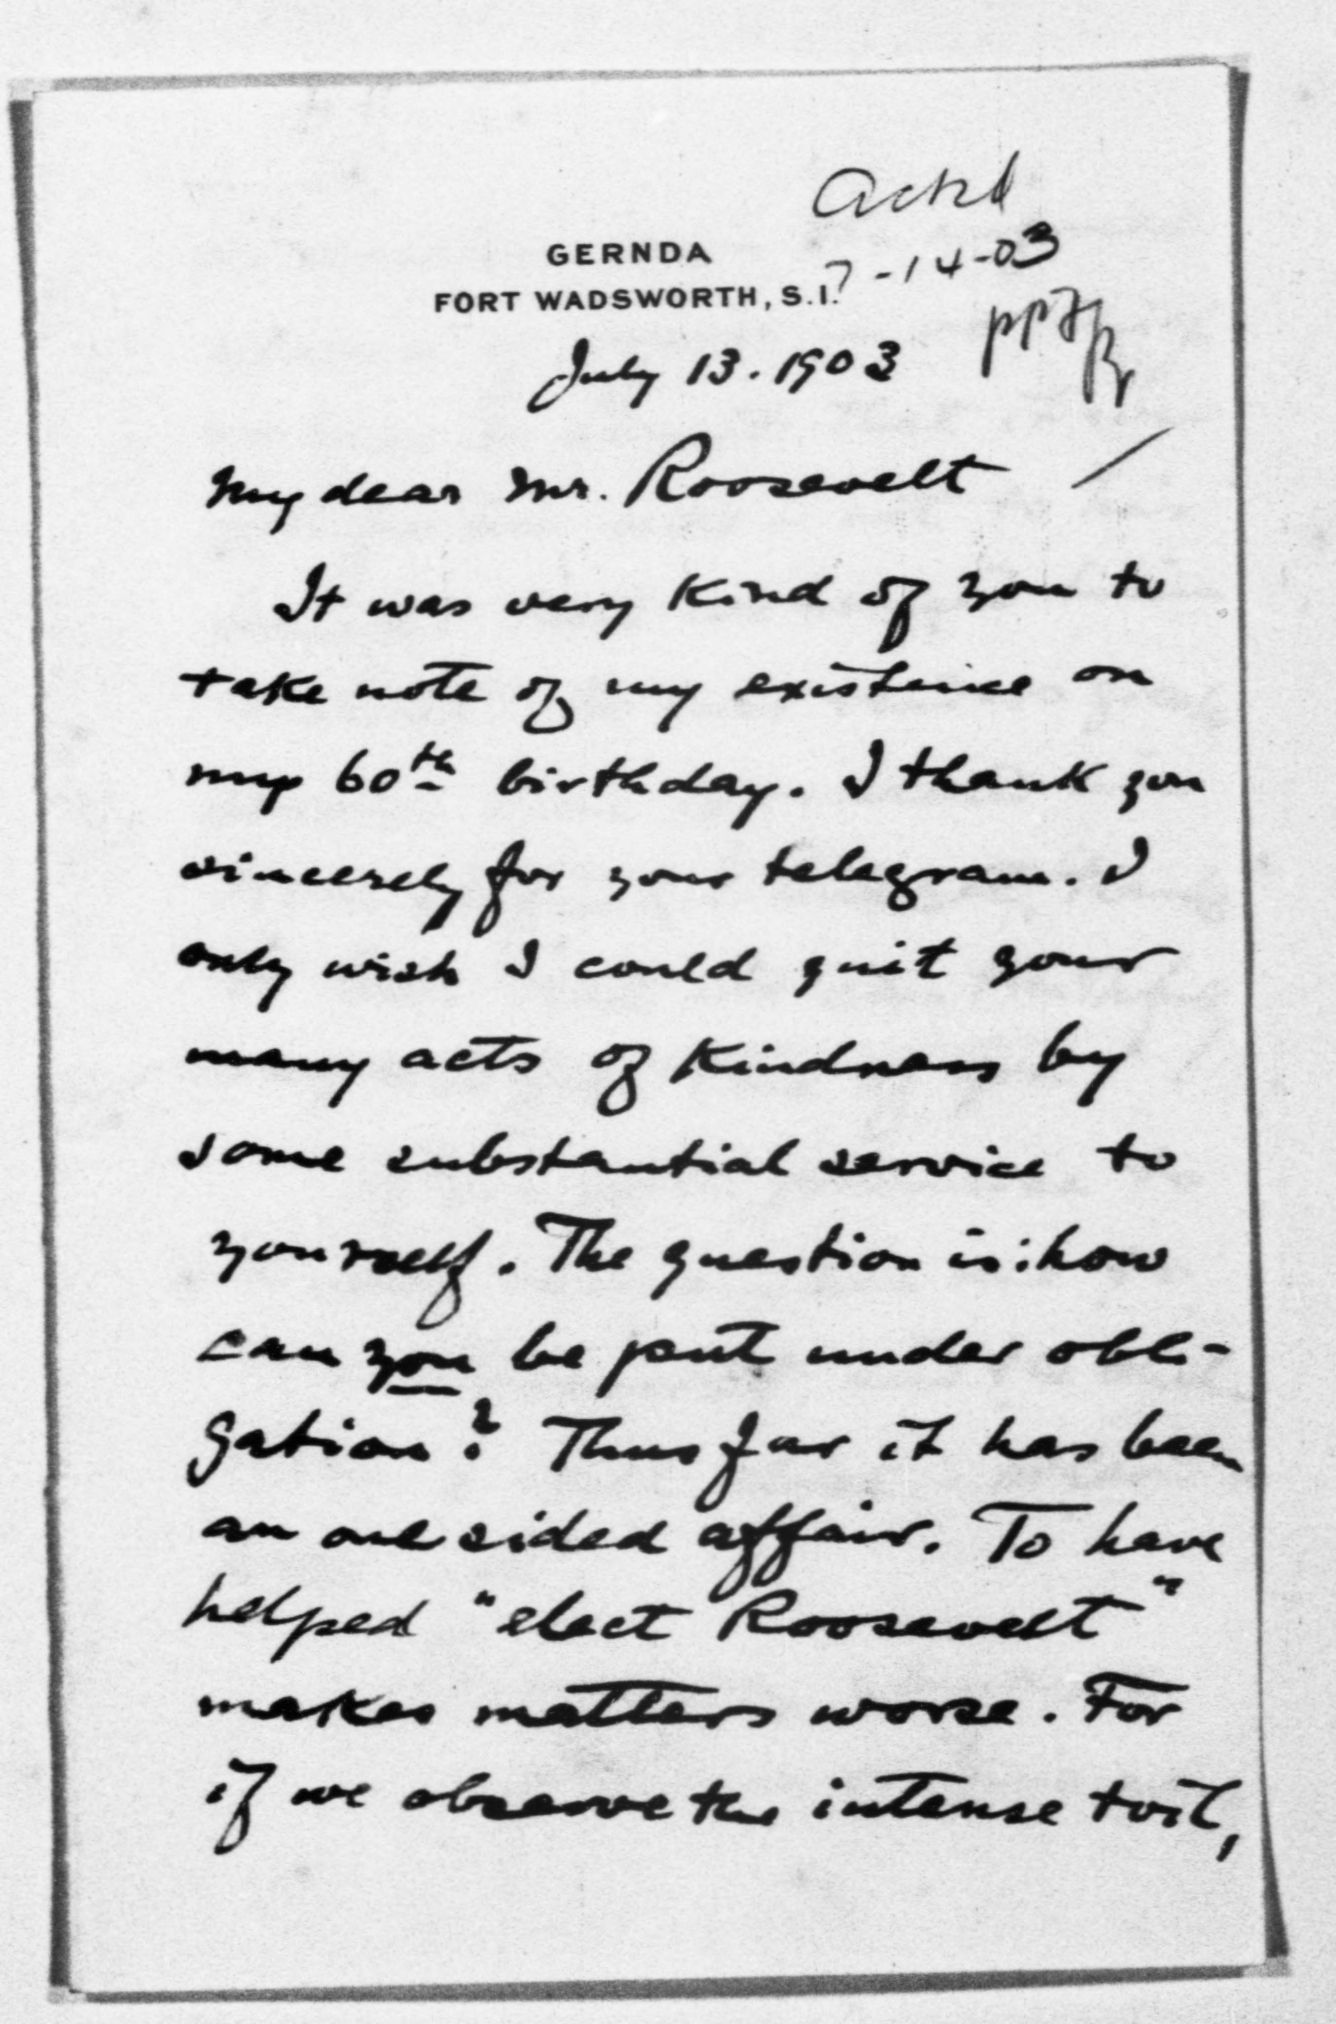 Ackd
GERNDA
7-14-03
FORT WADSWORTH, S.I.
ppF
July 13. 1903
My dear Mr. Roosevelt
It was very kind of you to
take note of my existence on
my 60th birthday. I thank you
sincerely for your telegram. I
only wish I could quit your
many acts of kindness by
some substantial service to
yourself. The question is: how
can you be put under obli-
gation? Thus far it has been
an one sided affair. To have
helped "elect Roosevelt"
makes matters worse. For
if we observe the intense toil,